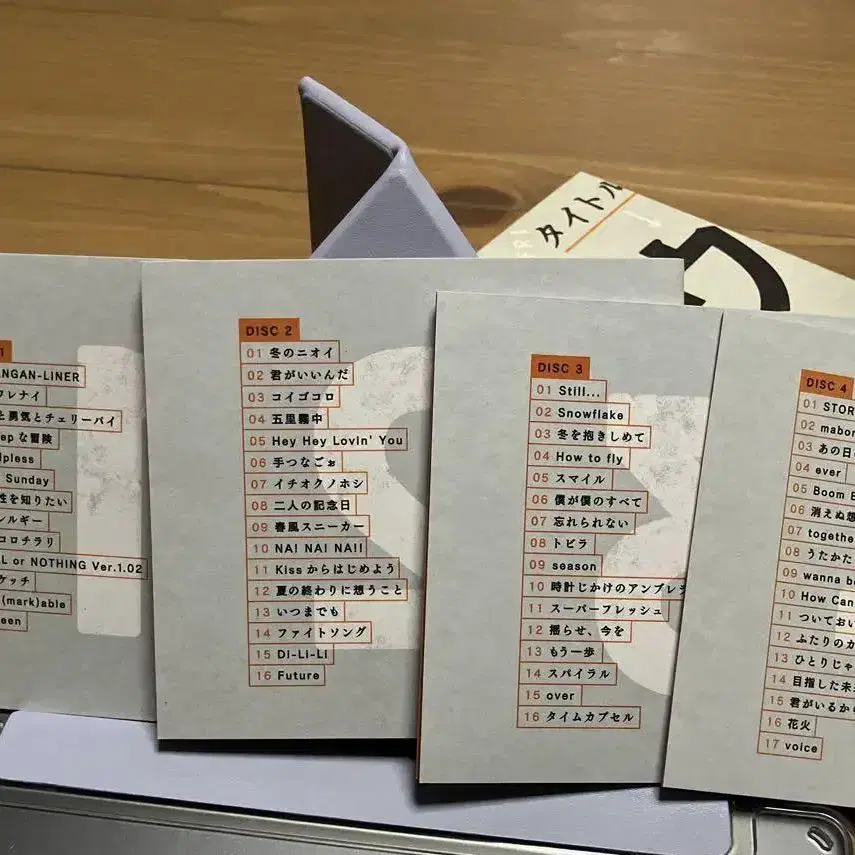 タイトル
1
ANGAN-LINER
クレナイ
と勇気とチェリーパイ
epな冒険
lpless
Sunday
性を知りたい
ルギー
コロチラリ
L or NOTHING Ver.1.02
ケッチ
(mark)able
een
DISC 2
01 冬のニオイ
02 君がいいんだ
03 コイゴコロ
04 五里霧中
05 Hey Hey Lovin' You
06 手つなごぉ
07 イチオクノホシ
08 二人の記念日
09 春風スニーカー
10 NA! NA! NA!!
11 Kissからはじめよう
12 夏の終わりに想うこと
13 いつまでも
14 ファイトソング
15 Di-Li-Li
16 Future
DISC 3
01 Still...
02 Snowflake
03 冬を抱きしめて
04 How to fly
05 スマイル
06 僕が僕のすべて
07 忘れられない
08 トビラ
09 season
10 時計じかけのアンブレ
11 スーパーフレッシュ
12 揺らせ、今を
13 もう一歩
14 スパイラル
15 over
16 タイムカプセル
DISC 4
01 STOR
02 mabor
03 あの日
04 ever
05 Boom B
06 消えぬ想
07 togethe
08 うたかた
09 wanna b
10 How Can
11 ついておい
12 ふたりのカ
13 ひとりじゃ
14 目指した未
15 君がいるか
16 花火
17 voice